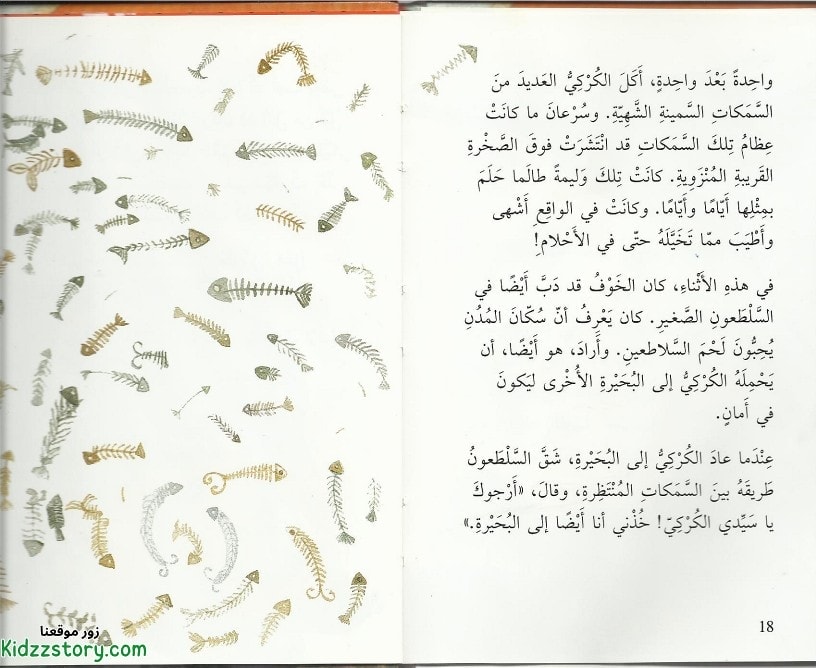 واحِدةً بَعْدَ واحِدةٍ، أَكَلَ الكُرْكِيُّ العَديدَ منَ
السَّمَكاتِ السَّمينةِ الشَّهِيّةِ. وسُرْعانَ ما كانَتْ
عِظامُ تِلكَ السَّمَكاتِ قد انْتَشَرَتْ فوقَ الصَّخْرةِ
القَريبةِ المُنْزَوِيةِ. كانَتْ تِلكَ وَليمةً طالَما حَلَمَ
بمِثْلِها أَيّامًا وأَيّامًا. وكانَتْ في الواقِعِ أَشْهى
وأَطْيَبَ ممّا تَخَيَّلَهُ حتّى في الأَحْلامِ!
في هذهِ الأَثْناءِ، كان الخَوْفُ قد دَبَّ أَيْضًا في
السَّلْطَعونِ الصَّغيرِ. كان يَعْرِفُ أنّ سُكّانَ المُدُنِ
يُحِبُّونَ لَحْمَ السَّلاطعينِ. وأَرادَ، هو أَيْضًا، أن
يَحْمِلَهُ الكُرْكِيُّ إلى البُحَيْرةِ الأُخْرى ليَكونَ
في أَمانٍ.
عِنْدَما عادَ الكُرْكِيُّ إلى البُحَيْرةِ، شَقَّ السَّلْطَعونُ
طَريقَهُ بينَ السَّمَكاتِ المُنْتَظِرةِ، وقالَ، «أَرْجوكَ
يا سَيِّدي الكُرْكِيّ! خُذْني أنا أَيْضًا إلى البُحَيْرةِ.»
18
زور موقعنا
Kidzzstory.com